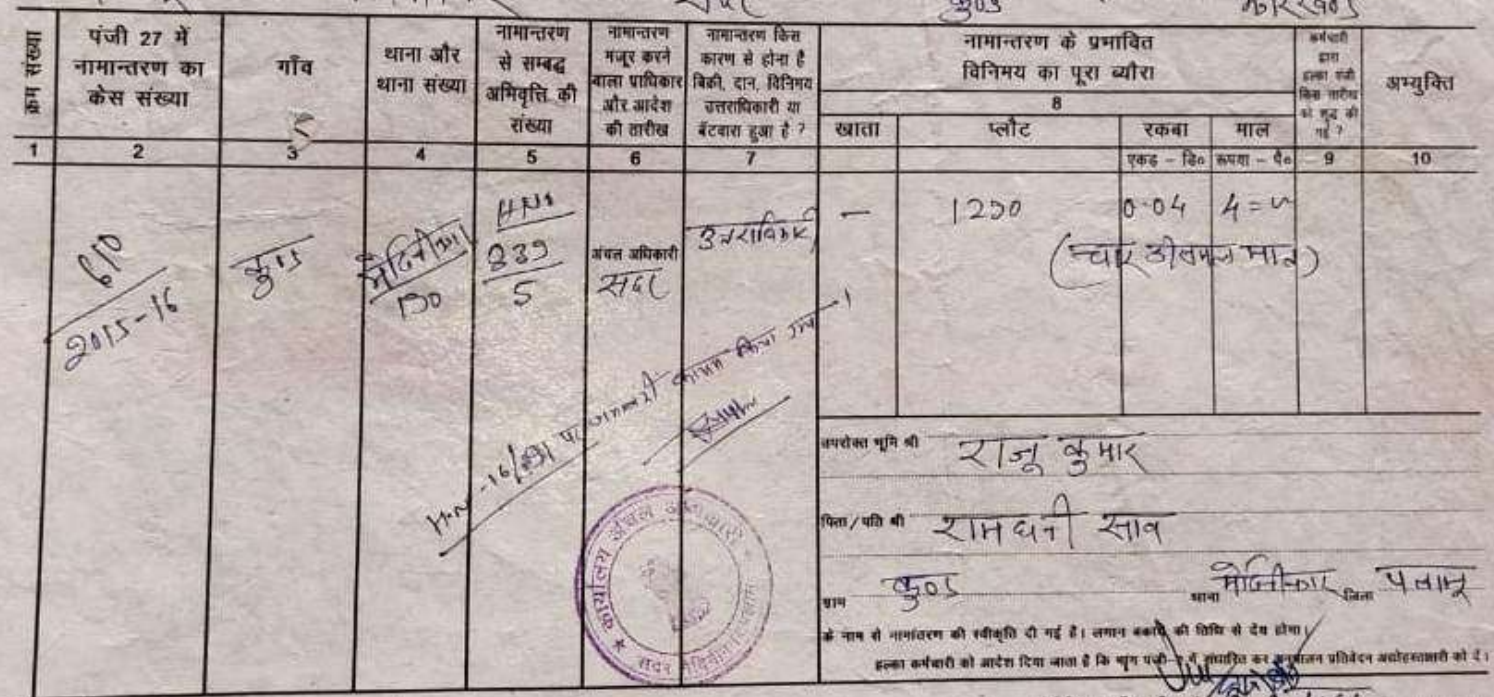 सदर कुण्ड झारखण्ड
क्रम संख्या
पंजी 27 में
नामान्तरण का
केस संख्या
गाँव
थाना और
थाना संख्या
नामान्तरण
से सम्बद्ध
अभिवृत्ति की
संख्या
नामान्तरण
मजूर करने
वाला प्राधिकार
और आदेश
की तारीख
नामान्तरण किस
कारण से होना है
बिक्री, दान, विनिमय
उत्तराधिकारी या
बँटवारा हुआ है ?
नामान्तरण के प्रभावित
विनिमय का पूरा ब्यौरा
8
खाता प्लौट रकबा माल
एकड़ - डि० रूपया - पै०
कर्मचारी
द्वारा
हल्का पंजी
किस तारीख
को शुद्ध की
गई ?
अभ्युक्ति
1 2 3 4 5 6 7 9 10
610
2015-16
कुण्ड
H.No
5
अंचल अधिकारी
सदर
उत्तराधिकारी
— 1290 0.04
पर जमाबन्दी कायम किया गया।
कार्यालय अंचल अधिकारी
सदर
उपरोक्त भूमि श्री राजू कुमार
पिता/पति श्री रामधनी साव
ग्राम कुण्ड थाना जिला पलामू
के नाम से नामांतरण की स्वीकृति दी गई है। लगान बकाये की तिथि से देय होगा।
हल्का कर्मचारी को आदेश दिया जाता है कि मांग पंजी में संधारित कर अनुपालन प्रतिवेदन अधोहस्ताक्षरी को दें।